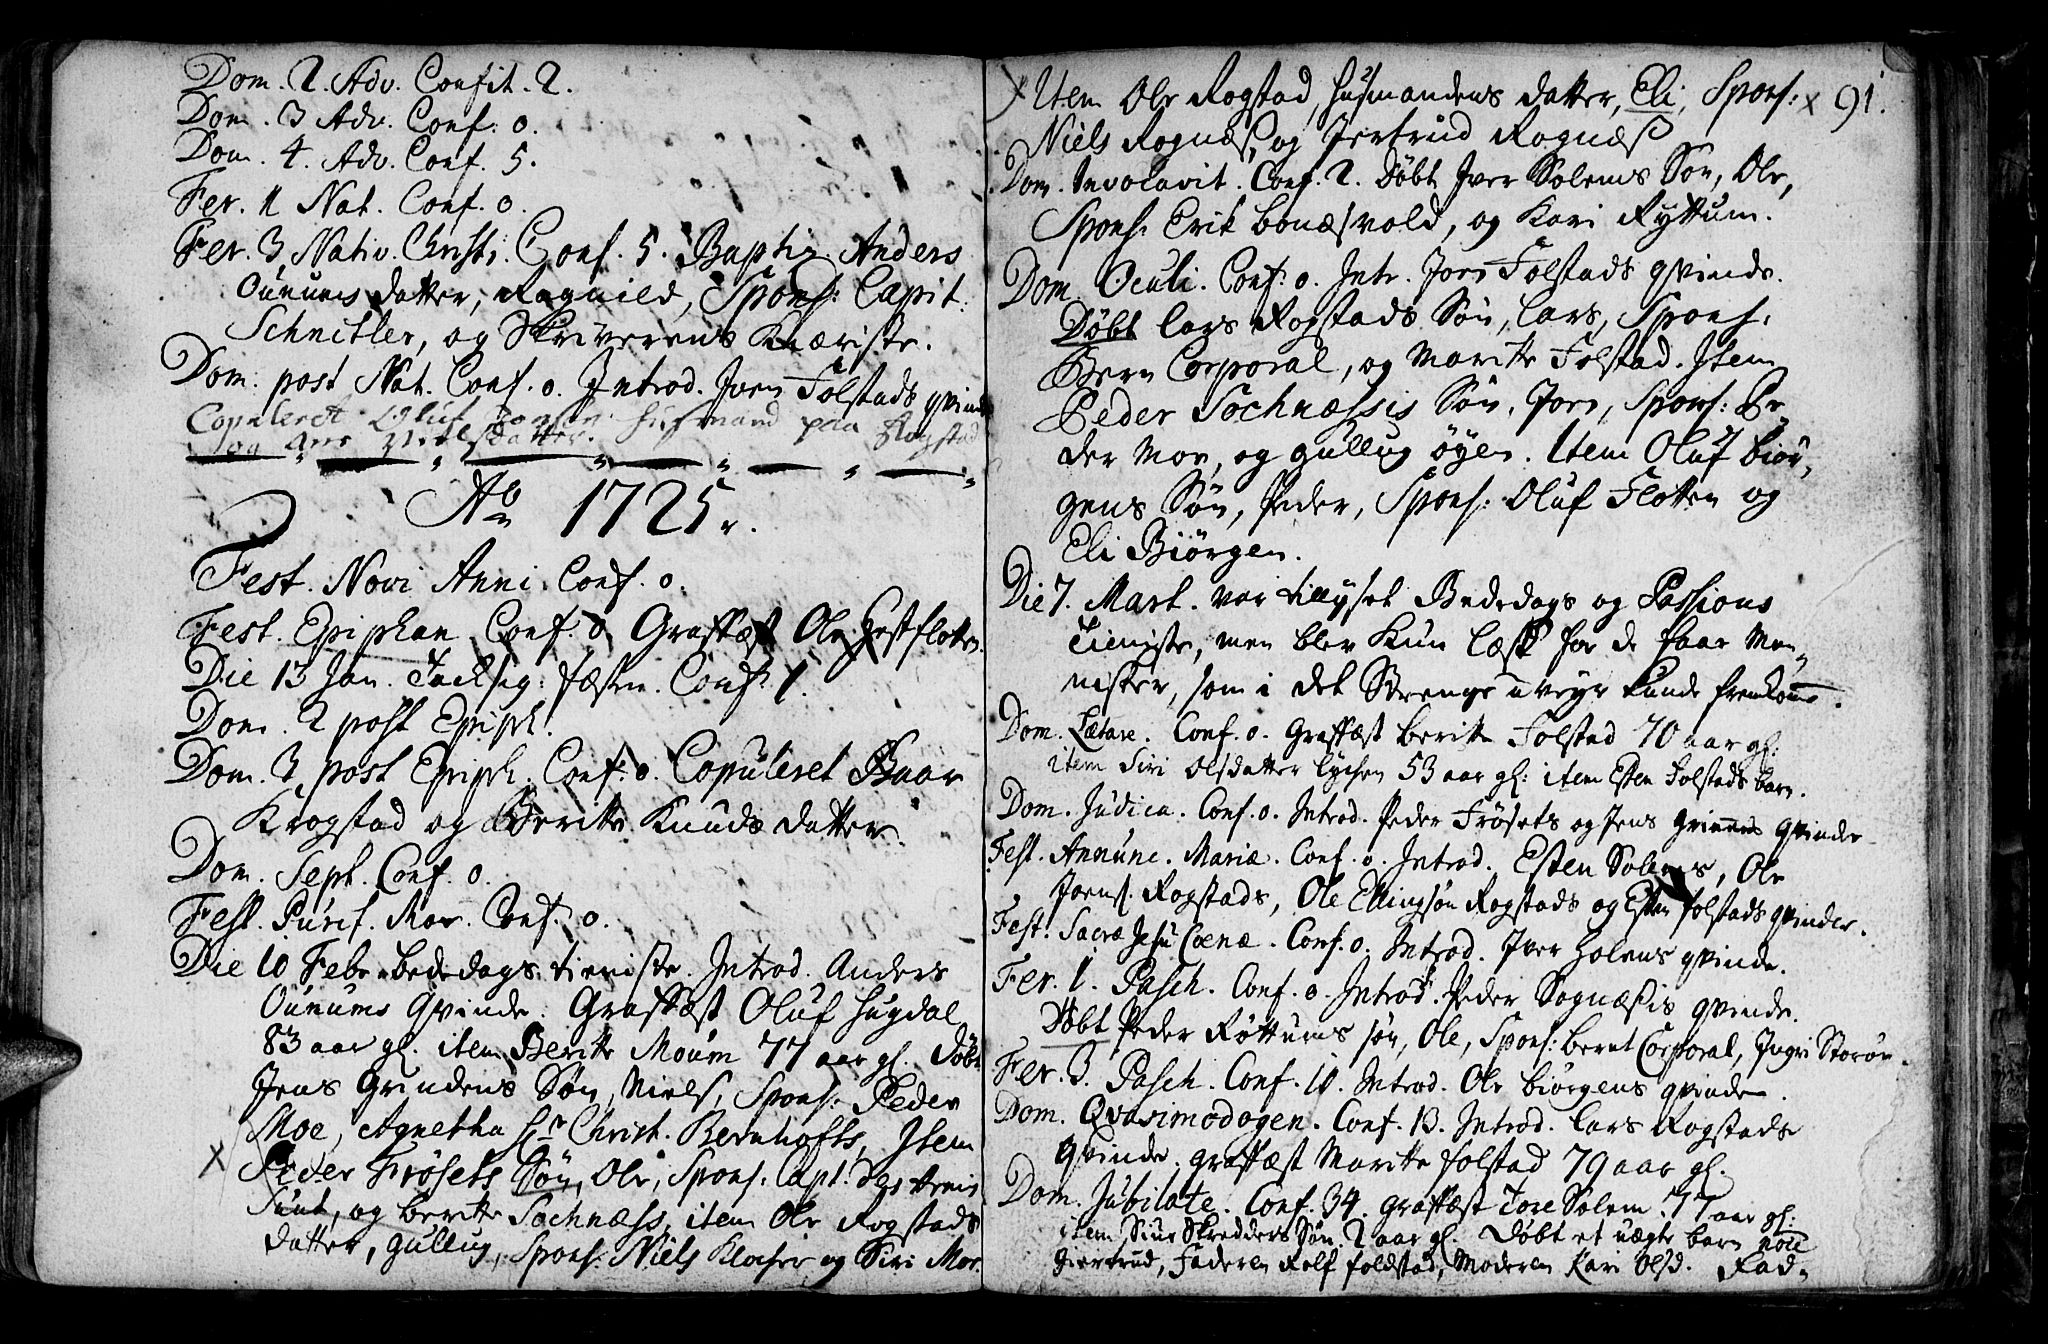 Dom. 2. Adv. Confit. 2.
Dom. 3 Adv. Conf. 0.
Dom. 4. Adv. Conf. 5.
Fer. 11 Nat. Conf. 0.
Fer. 3 Nativ. Christi. Conf. 5. Baptiz. Anders
Ounums datter, Ragnild, Spons: Capit.
Schnitler, og Skriverens
Dom. post Nat. Conf. 0. Introd. Joen Folstads qvinde
Copuleret Oluf Huusmand paa Rogstad
og datter.
Ao 1725.
Fest. Novi Anni. Conf. 0.
Fest. Epiphan. Conf. 0. Graffæst Ole
Die 13 Jan. Tacksig: fæsten. Conf. 1.
Dom. 2 post Epiph.
Dom. 3, post Epiph. Conf. 0. Copuleret Baar
Krogstad og Beritte Knuds datter.
Dom. Sept. Conf. 0.
Fest. Purif. Mar. Conf. 0.
Die 10 Febr. Bededags tieniste. Introd. Anders
Ounums Qvinde. Graffæst Oluf Hugdal
83 aar gl. item Beritte Moum 77 aar gl. Döbt
Jens Grindens Sön, Niels, Spons: Peder
Moe, Agnetha Hr Christ. Bernhofts, Item
x Peder Frösets Sön, Ole, Spons: Capt.
og Beritte Sochnæss, item Ole Rogstads
datter, Gullug, Spons: Niels Klocker og Siri Mor.
x Item Ole Rogstad, Husmandens datter, Eli, Spons: x 91.
Niels Rognæs, og Jertrud Rognæs
Dom. Invocavit. Conf. 2. Döbt Iver Solems Sön, Ole,
Spons. Erik Bonæsvold, og Kari Ryttum.
Dom. Oculi. Conf: 0. Intr. Joen Folstads qvinde.
Döbt Lars Rogstads Sön, Lars, Spons.
Bern Corporal, og Maritte Folstad. Item
Peder Sochnæssis Sön, Joen, Spons: Pe,
der Mor, og Gullug Öyen. Item Oluf Biör,
gens Sön, Peder, Spons: Oluf Flotten og
Eli Biörgen.
Die 7. Mart. var tillyset Bededags og Passions
Tieniste, men blev kun læst for de faae Men,
nisker, som i det strenge uveyr kunde fremkomme.
Dom. Lætare. Conf. 0. Graffæst Beritte Folstad 70 aar gl:
item Siri Olsdatter Lychen 53 aar gl: item Esten Folstads barn.
Dom. Judica. Conf. 0. Introd. Peder Frösets og Jens Grinens qvinder
Fest. Annunc. Mariæ. Conf. 0. Introd. Esten Solems, Ole
Joens. Rogstads, Ole Ellingsön Rogstads og Esten Folstads qvinder.
Fest. Sacræ Jesu Coenæ. Conf. 0. Introd. Iver Holens qvinde.
Fer. 1. Pasch. Conf. 0. Introd. Peder Sognæssis qvinde.
Döbt Peder Röttums sön, Ole, Spons: Bernt Corporal, Ingri Storöen.
Fer. 3. Pasch. Conf. 10. Introd. Ole Biörgens qvinde.
Dom. Qvasimodogen. Conf. 13. Introd. Lars Rogstads
Qvinde. graffæst Maritte Folstad 79 aar gl.
Dom. Jubilate. Conf. 34. graffæst Tore Solem. 77 aar gl:
item Siur Skredders Sön. 2 aar gl. Döbt et uægte barn
Giertrud, Faderen Rolf Foldstad, Moderen Kari Olsd. Fad,